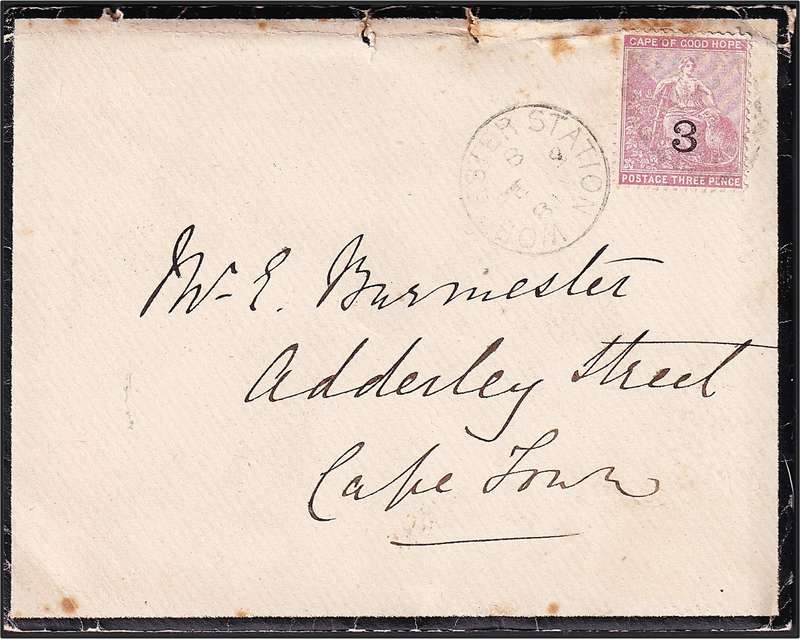 CAPE OF GOOD HOPE
3
POSTAGE THREE PENCE
WORCESTER STATION
Mr. E. Burmester
Adderley Street
Cape Town